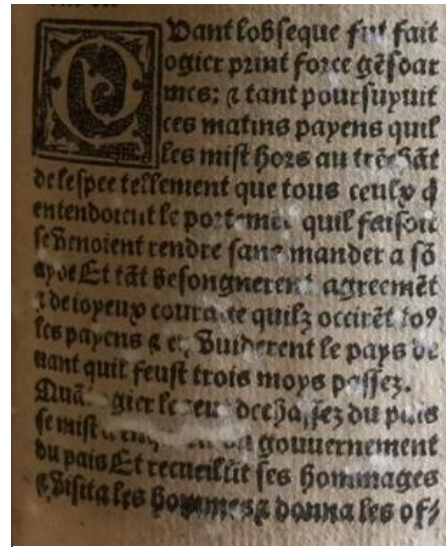 Quant lobseque fut fait
ogier print force gẽsdar
mes: ⁊ tant poursuyuit
ces matins payens quil
les mist hors au trẽchãt
de lespee tellement que tous ceulx q̃
entendoient le portemẽt quil faisoit
se venoient rendre sans mander a sõ
ayde Et tãt besongnerent agreemẽt
⁊ de ioyeux courage quilz occirẽt toꝰ
les payens ⁊ en vuiderent le pays de
uant quil feust trois moys passez.
Quãt ogier les eut dechassez du pais
se mist gouuernement
du pais Et recueillit ses hommages
⁊ visita les hommes ⁊ donna les of⸗